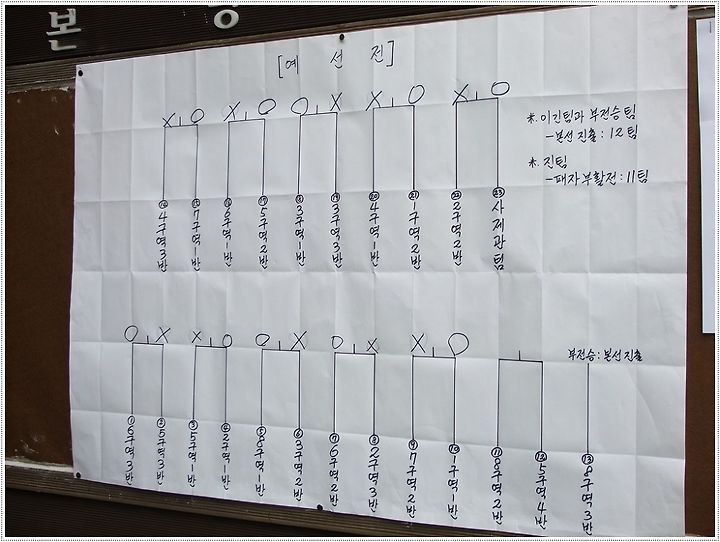 본
[예 선 전]
X O X O O X X O X O
※. 이긴팀과 부전승팀
-본선진출: 12팀
※. 진팀
-패자부활전: 11팀
⑭ 4구역3반
⑮ 7구역1반
⑯ 6구역1반
⑰ 5구역2반
⑱ 3구역1반
⑲ 3구역3반
⑳ 4구역1반
㉑ 1구역2반
㉒ 2구역2반
㉓ 사제관팀
O X X O O X O X X O
부전승: 본선진출
① 6구역3반
② 5구역3반
③ 5구역1반
④ 2구역1반
⑤ 8구역1반
⑥ 3구역2반
⑦ 6구역2반
⑧ 2구역3반
⑨ 7구역2반
⑩ 1구역1반
⑪ 8구역2반
⑫ 5구역4반
⑬ 8구역3반